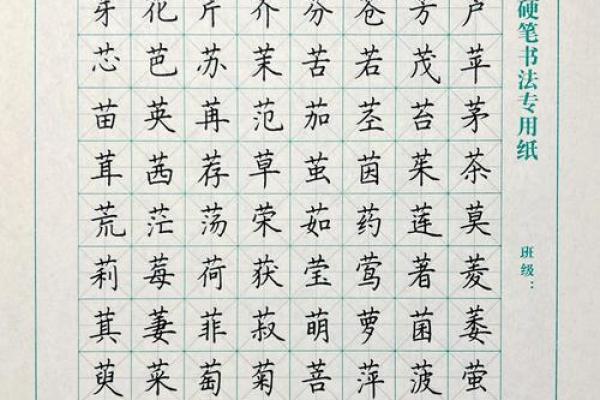 芽花芹芥芬苍芳芦
芯芭苏茉苦若茂苹
苗英苒范茄茎苔茅
茸茜荐草茧茵茱茶
荒茫荡荣茹药莲莫
莉莓荷获莹莺著菱
萁萋菲菽萌萝菌萎
萸菜萄菊菩萍菠萤
硬笔书法专用纸
班级：